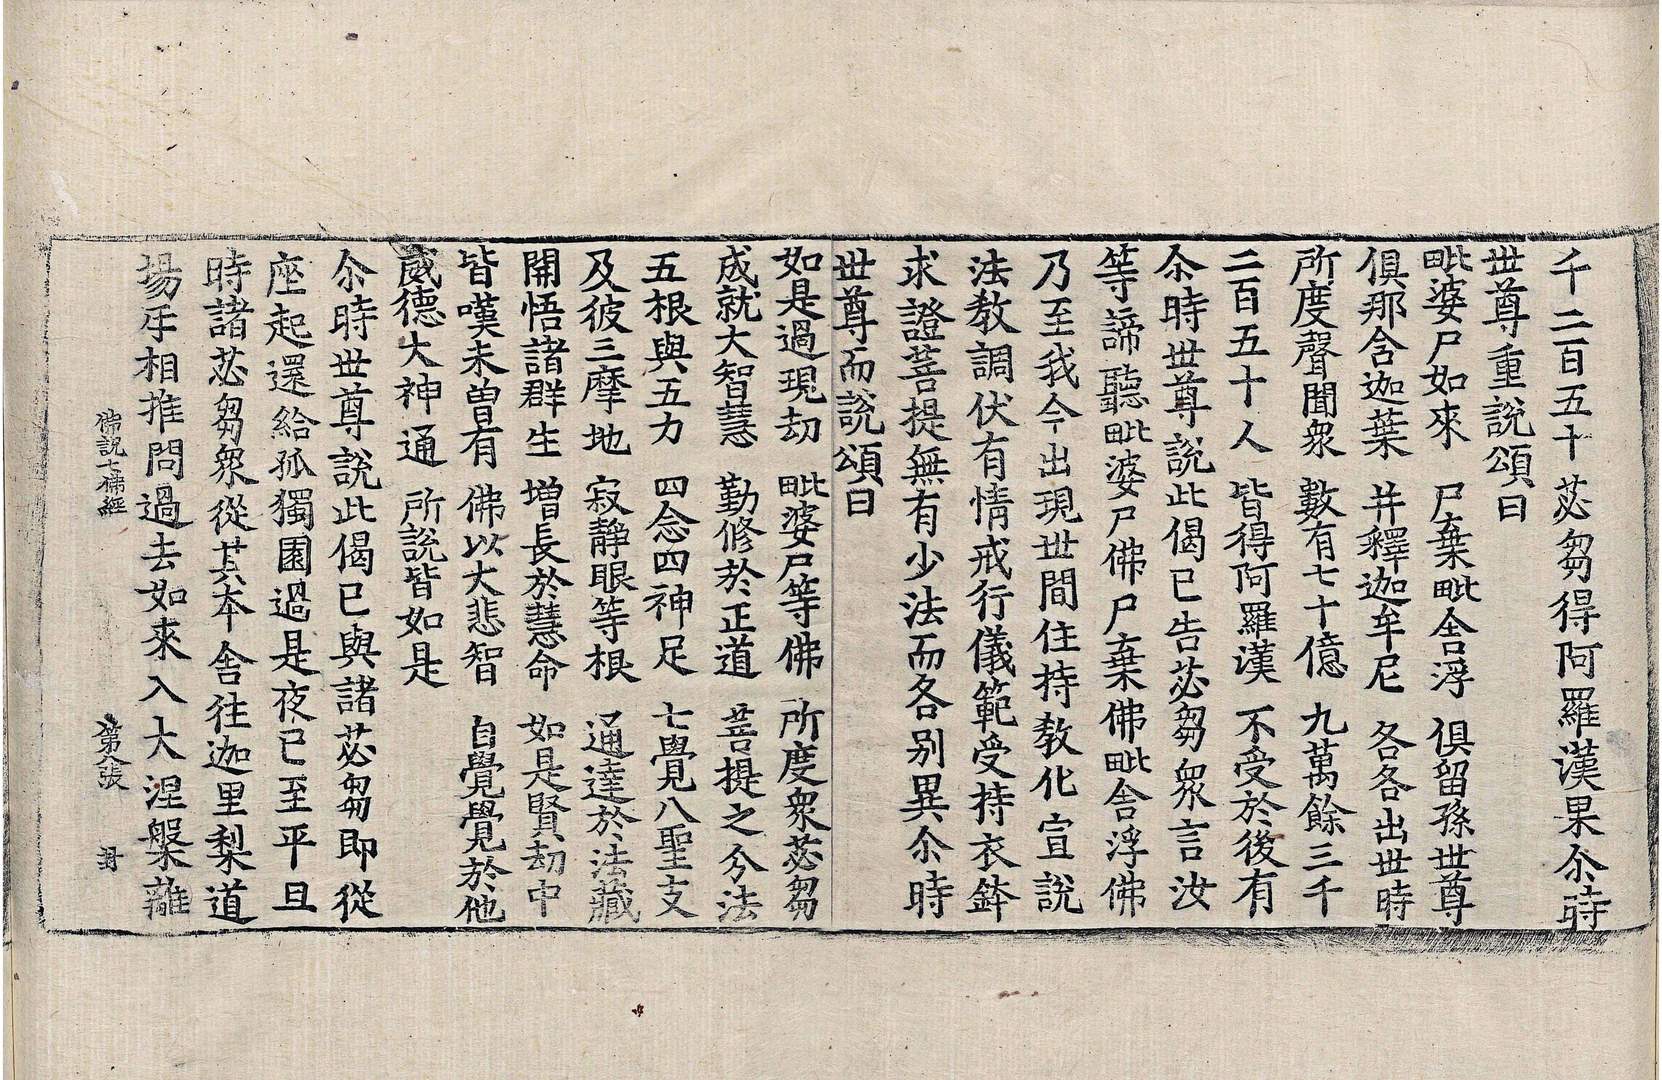 千二百五十苾芻得阿羅漢果尒時
世尊重說頌曰
毗婆尸如來　尸棄毗舍浮　俱留孫世尊
俱那含迦葉　并釋迦牟尼　各各出世時
所度聲聞衆　數有七十億　九萬餘三千
二百五十人　皆得阿羅漢　不受於後有
尒時世尊說此偈已告苾芻衆言汝
等諦聽毗婆尸佛尸棄佛毗舍浮佛
乃至我今出現世間住持敎化宣說
法敎調伏有情戒行儀範受持衣鉢
求證菩提無有少法而各别異尒時
世尊而說頌曰
如是過現劫　毗婆尸等佛　所度衆苾芻
成就大智慧　勤修於正道　菩提之分法
五根與五力　四念四神足　七覺八聖支
及彼三摩地　寂靜眼等根　通達於法藏
開悟諸群生　增長於慧命　如是賢劫中
皆嘆未曾有　佛以大悲智　自覺覺於他
威德大神通　所說皆如是
尒時世尊說此偈已與諸苾芻即從
座起還給孤獨園過是夜已至平旦
時諸苾芻衆從其本舍往迦里梨道
場互相推問過去如來入大涅槃離
佛說七佛經　第八張　封